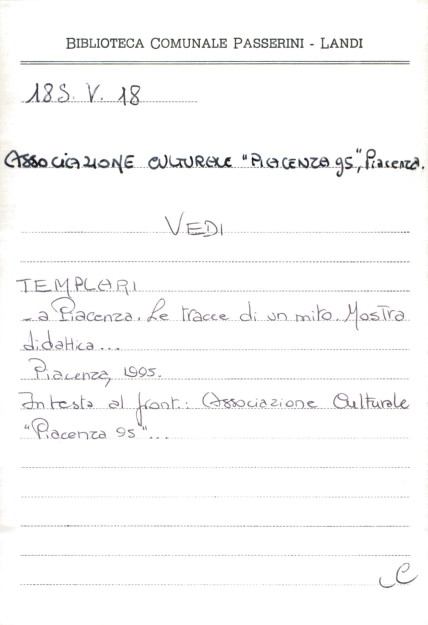 BIBLIOTECA COMUNALE PASSERINI - LANDI
18S. V. 18
ASSOCIAZIONE CULTURALE "PIACENZA 95", Piacenza.
VEDI
TEMPLARI
- a Piacenza. Le tracce di un mito. Mostra
didattica...
Piacenza, 1995.
Intesta al front.: Associazione Culturale
"Piacenza 95"...